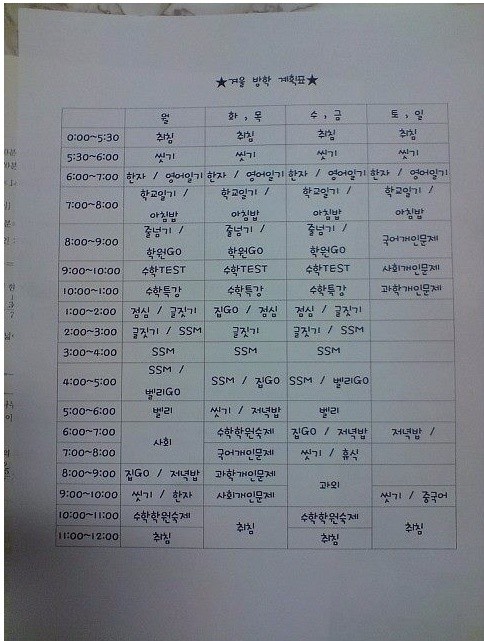 ★겨울 방학 계획표★
월 화, 목 수, 금 토, 일
0:00~5:30 취침 취침 취침 취침
5:30~6:00 씻기 씻기 씻기 씻기
6:00~7:00 한자 / 영어일기 한자 / 영어일기 한자 / 영어일기 한자 / 영어일기
7:00~8:00 학교일기 / 학교일기 / 학교일기 / 학교일기 /
아침밥 아침밥 아침밥 아침밥
8:00~9:00 줄넘기 / 줄넘기 / 줄넘기 / 국어개인문제
학원GO 학원GO 학원GO
9:00~10:00 수학TEST 수학TEST 수학TEST 사회개인문제
10:00~1:00 수학특강 수학특강 수학특강 과학개인문제
1:00~2:00 점심 / 글짓기 집GO / 점심 점심 / 글짓기
2:00~3:00 글짓기 / SSM 글짓기 글짓기 / SSM
3:00~4:00 SSM SSM SSM
4:00~5:00 SSM / SSM / 집GO SSM / 벨리GO
벨리GO
5:00~6:00 벨리 씻기 / 저녁밥 벨리
6:00~7:00 사회 수학학원숙제 집GO / 저녁밥 저녁밥 /
7:00~8:00 국어개인문제 씻기 / 휴식
8:00~9:00 집GO / 저녁밥 과학개인문제 과외
9:00~10:00 씻기 / 한자 사회개인문제 씻기 / 중국어
10:00~11:00 수학학원숙제 취침 수학학원숙제 취침
11:00~12:00 취침 취침